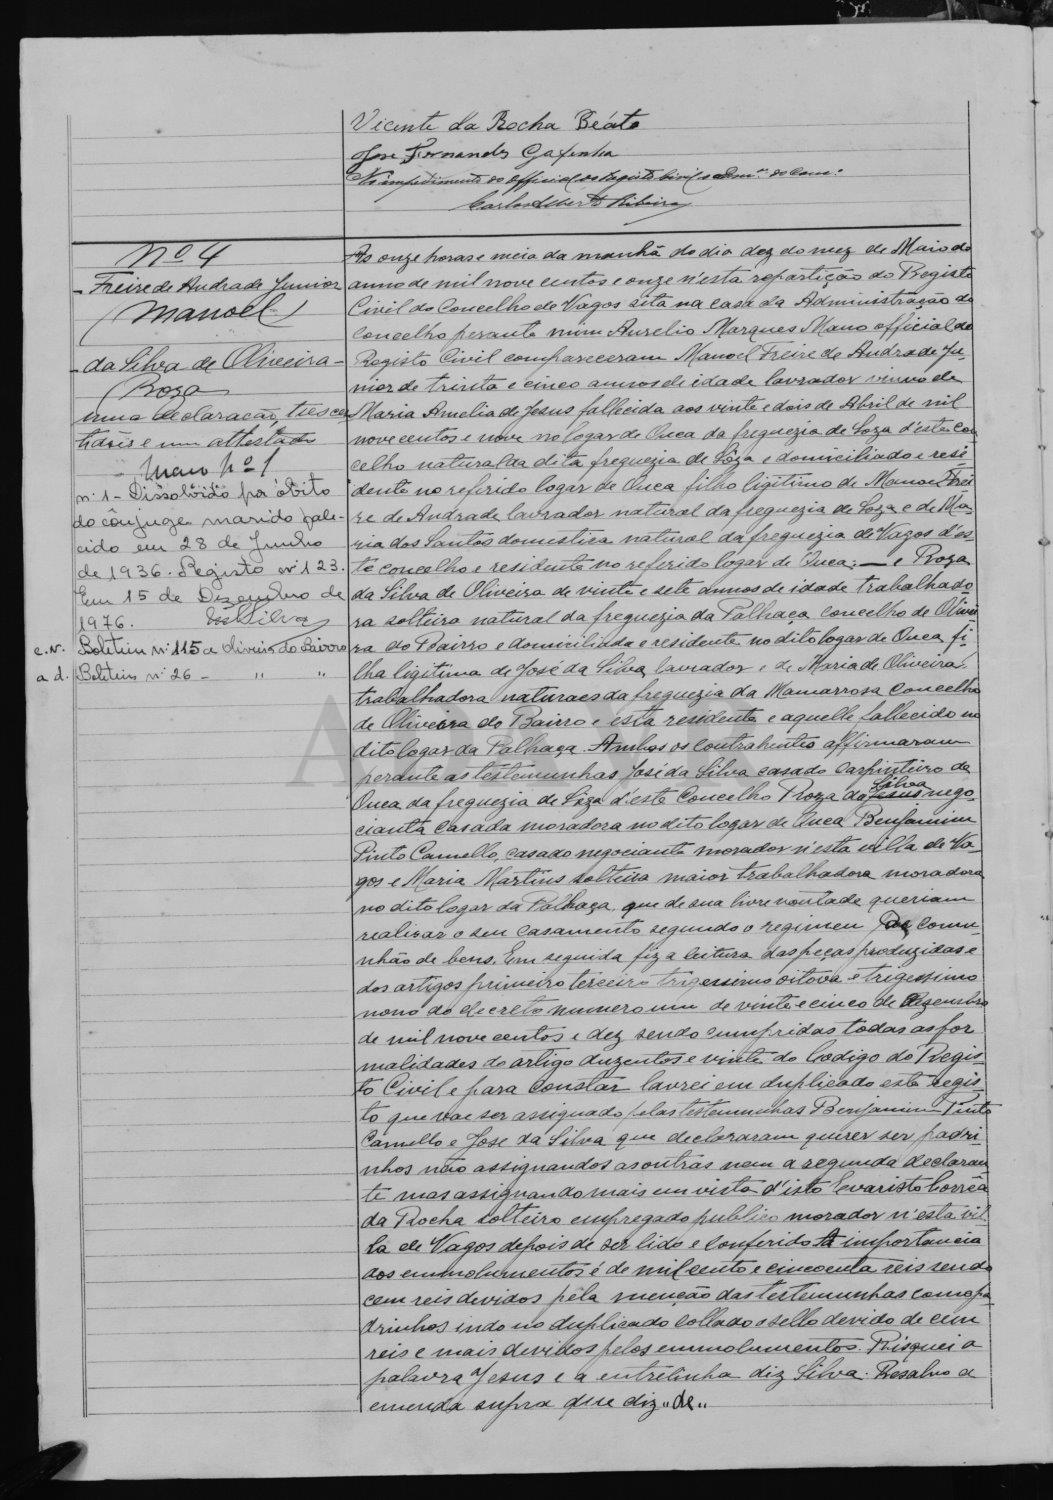 Vicente da Rocha Beáto
Jose Fernandes Gafanha
No impedimento do official do Registo Civil o Adm.or do Conc.o
Carlos Alberto Ribeiro
Nº 4
Freire de Andrade Junior
(Manoel)
da Silva de Oliveira
(Roza)
uma declaração, tres cer
tidões e um attestado
Maço Nº 1
nº 1 - Dissolvido por óbito
do cônjuge marido fale-
cido em 28 de Junho
de 1936. Registo nº 123.
Em 15 de Dezembro de
1976.
c. N. Boletim nº 115 a Oliveira do Bairro
a d. Boletim nº 26 - " "
As onze horas e meia da manhã do dia dez do mez de Maio do
anno de mil nove centos e onze n'esta repartição do Registo
Civil do Concelho de Vagos sita na casa da Administração do
concelho perante mim Aurelio Marques Mano official do
Registo Civil compareceram Manoel Freire de Andrade Ju-
nior de trinta e cinco annos de idade lavrador viuvo de
Maria Amelia de Jesus fallecida aos vinte e dois de Abril de mil
nove centos e nove no logar de Ouca da freguezia de Soza d'este con
celho natural da dita freguezia de Sôza e domiciliado e resi
dente no referido logar de Ouca filho ligitimo de Manoel Frei
re de Andrade lavrador natural da freguezia de Soza e de Ma-
ria dos Santos domestica natural da freguezia de Vagos d'es
te concelho e residente no referido logar de Ouca; — e Roza
da Silva de Oliveira de vinte e sete annos de idade trabalhado
ra solteira natural da freguezia da Palhaça concelho de Olivei
ra do Bairro e domiciliada e residente no dito logar de Ouca fi-
lha ligitima de José da Silva, lavrador e de Maria de Oliveira
trabalhadora naturaes da freguezia da Mamarrosa Concelho
de Oliveira do Bairro e esta residente e aquelle fallecido no
dito logar da Palhaça. Ambos os contrahentes affirmaram
perante as testemunhas José da Silva casado carpinteiro de
Ouca da freguezia de Sôza d'este Concelho Roza da Jesus Silva nego-
cianta casada moradora no dito logar de Ouca Benjamim
Pinto Camello, casado negociante morador n'esta villa de Va-
gos e Maria Martins solteira maior trabalhadora moradora
no dito logar da Palhaça, que de sua livre vontade queriam
realizar o seu casamento segundo o regimen de commu-
nhão de bens. Em seguida fiz a leitura das peças produzidas e
dos artigos primeiro terceiro trigessimo oitova e trigessimo
nono do decreto numero um de vinte e cinco de Dezembro
de mil nove centos e dez sendo cumpridas todas as for
malidades do artigo duzentos e vinte do Codigo do Regis-
to Civil e para constar lavrei em duplicado este regis-
to que vae ser assignado pelas testemunhas Benjamim Pinto
Camello e Jose da Silva que declararam querer ser padri-
nhos não assignando as outras nem a segunda declaran
te mas assignando mais em vista d'isto Evaristo Corrêa
da Rocha solteiro empregado publico morador n'esta vil
la de Vagos depois de ser lido e conferido. A importancia
dos emmolumentos é de mil cento e cincoenta reis sendo
cem reis devidos pela menção das testemunhas como pa-
drinhos indo no duplicado collado o sello devido de cem
reis e mais devidos pelos emmolumentos. Risquei a
palavra Jesus e a entrelinha diz Silva. Resalvo a
emenda supra que diz „de„